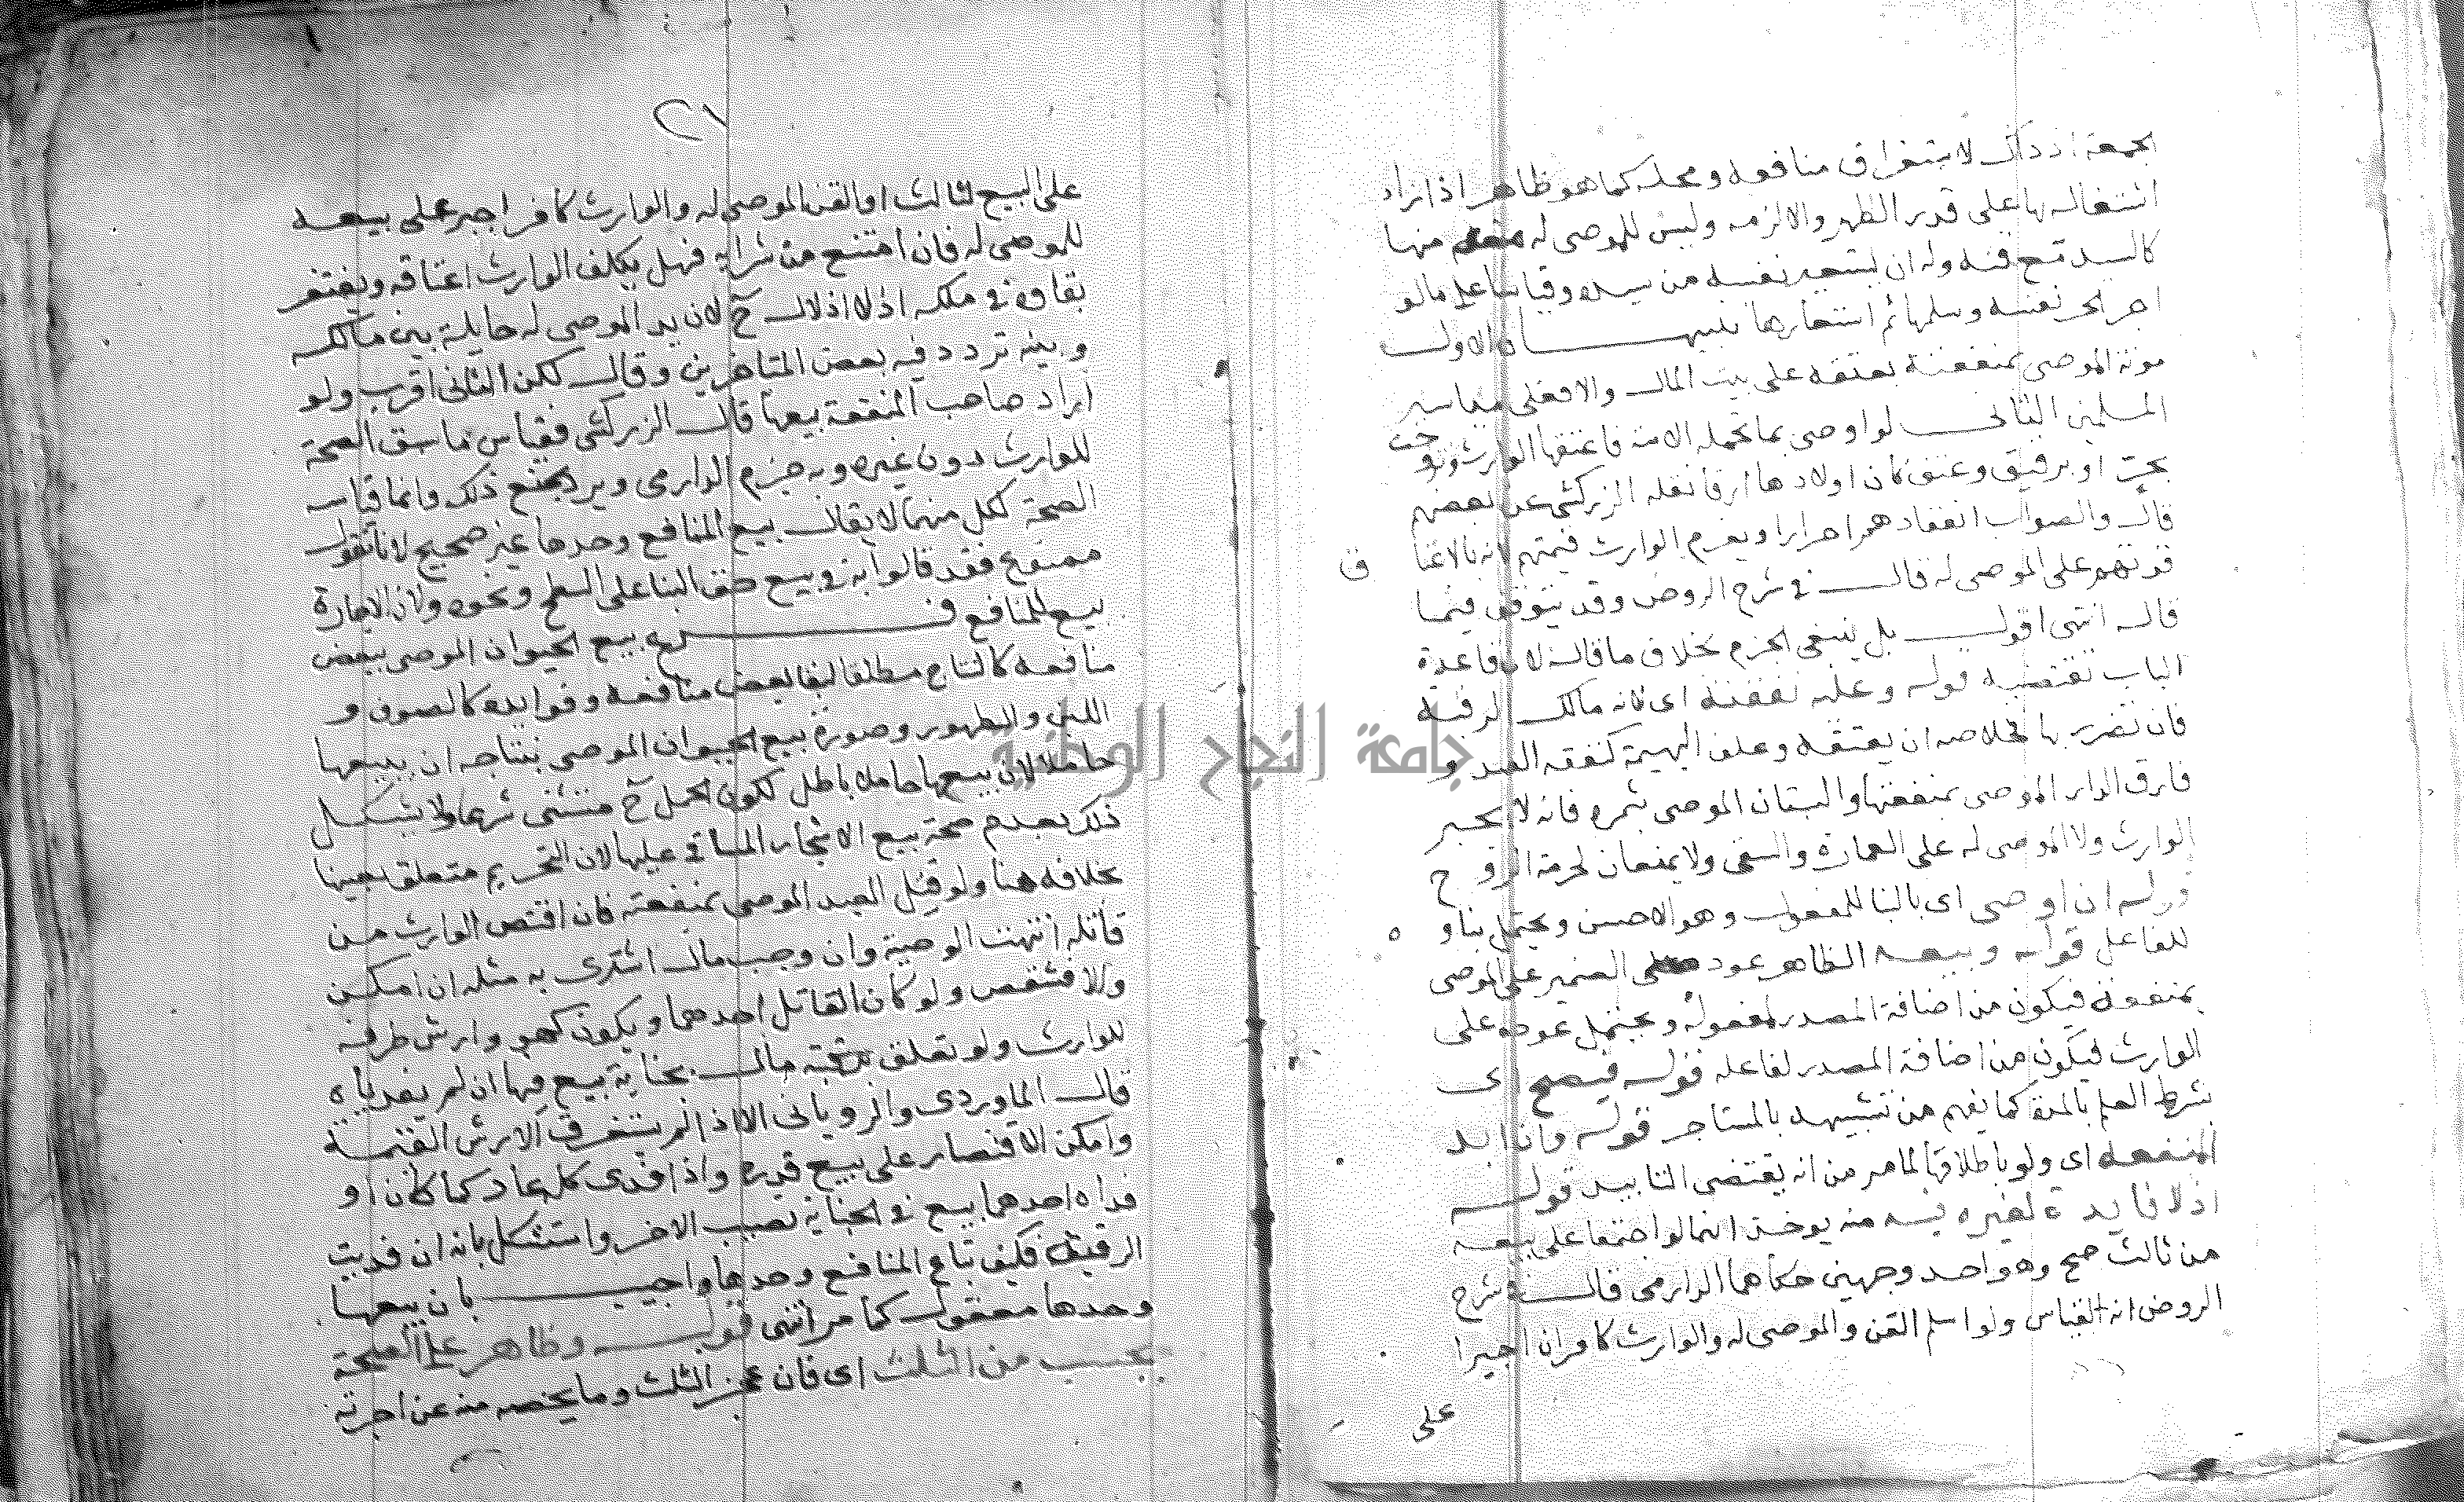 الجمعة اذ ذاك لاستغراق منافعه ومحله كما هو ظاهر اذا زاد
اشتغاله بها على قدر الظهر والا لزمه وليس للموصى له منعه منها
كالسيد مع قنه وله ان يستعير نفسه من سيده وقياسا على ما لو
اجر الحر نفسه وسلمها ثم استعارها تنبيهان الاول
مونة الموصى بمنفعته بعتقه على بيت المال والا فعلى مياسير
المسلمين الثانى لو اوصى بما تحمله الامة فاعتقها الوارث وتزوجت
بحر او برقيق وعتق كان اولادها ارقا نقله الزركشى عن بعضهم
قال والصواب انعقادهم احرارا ويغرم الوارث قيمتهم لانه بالاعتاق
فوتهم على الموصى له قال فى شرح الروض وقد يتوقف فيما
قاله انتهى اقول بل ينبغى الجزم بخلاف ما قاله لان قاعدة
الباب تقتضيه قوله وعليه نفقته اى لانه مالك الرقبة
فان تضرر بها فخلاصه ان يعتقه وعلف البهيمة كنفقة العبد و
فارق الدار الموصى بمنفعتها والبستان الموصى بثمره فانه لا يجبر
الوارث ولا الموصى له على العمارة والسقى ولا يمنعان لحرمة الروح
قوله ان اوصى اى بالبنا للمفعول وهو الاحسن ويحتمل بناوه
للفاعل قوله وبيعه الظاهر عود الضمير على الموصى
بمنفعته فيكون من اضافة المصدر لمفعوله ويحتمل عوده على
الوارث فيكون من اضافة المصدر لفاعله قوله فيصح اى
بشرط العلم بالمدة كما يفهم من تشبيهه بالمستاجر قوله وان ابد
المنفعه اى ولو باطلاقها لما مر من انه يقتضى التابيد قوله
اذ لا فايدة لغيره فيه منه يوخذ انهما لو اجتمعا على بيعه
من ثالث صح وهو احد وجهين حكاهما الدارمى قال فى شرح
الروض انه القياس ولو اسلم القن والموصى له والوارث كافران اجبرا
على
٢٧
على البيع لثالث او القن الموصى له والوارث كافر اجبر على بيعه
للموصى له فان امتنع من شرايه فهل يكلف الوارث اعتاقه ويغتفر
بقاوه فى ملكه اذ لا اذلال ح لان يد الموصى له حايلة بين مالكه
وبينه تردد فيه بعض المتاخرين وقال لكن الثانى اقرب ولو
اراد صاحب المنفعة بيعها قال الزركشى فقياس ما سبق الصحة
للوارث دون غيره وبه جزم الدارمى ويرد بمنع ذلك وانما قياسه
الصحة لكل منهما لا يقال بيع المنافع وحدها غير صحيح لانا نقول
ممنوع فقد قالوا به فى بيع حق البنا على السطح ونحوه ولان الاجارة
بيع للمنافع فرع بيع الحيوان الموصى ببعض
منافعه كالنتاج مطلقا لبقا بعض منافعه وفوايده كالصوف و
اللبن والظهور وصورة بيع الحيوان الموصى بنتاجه ان يبيعها
حايلا لان بيعها حاملا باطل لكون الحمل ح مستثنى شرعا ولا يشكل
ذلك بعدم صحة بيع الاشجار المساقى عليها لان التحريم متعلق بعينها
بخلافه هنا ولو قتل العبد الموصى بمنفعته فان اقتص الوارث من
قاتله انتهت الوصية وان وجب مال اشترى به مثله ان امكن
والا فشقص ولو كان القاتل احدهما ويكون كهو وارش طرفه
للوارث ولو تعلق برقبته مال بجناية بيع فيها ان لم يفدياه
قال الماوردى والرويانى الا اذا لم يستغرق الارش القيمة
وامكن الاقتصار على بيع قدره واذا فدى كله عاد كما كان او
فداه احدهما بيع فى الجناية نصيب الاخر واستشكل بانه ان فديت
الرقبة فكيف تباع المنافع وحدها واجيب بان بيعها
وحدها معقول كما مر انتهى قوله وظاهر على الصحة
يحسب من الثلث اى فان عجز الثلث وما يخصه منه عن اجرته